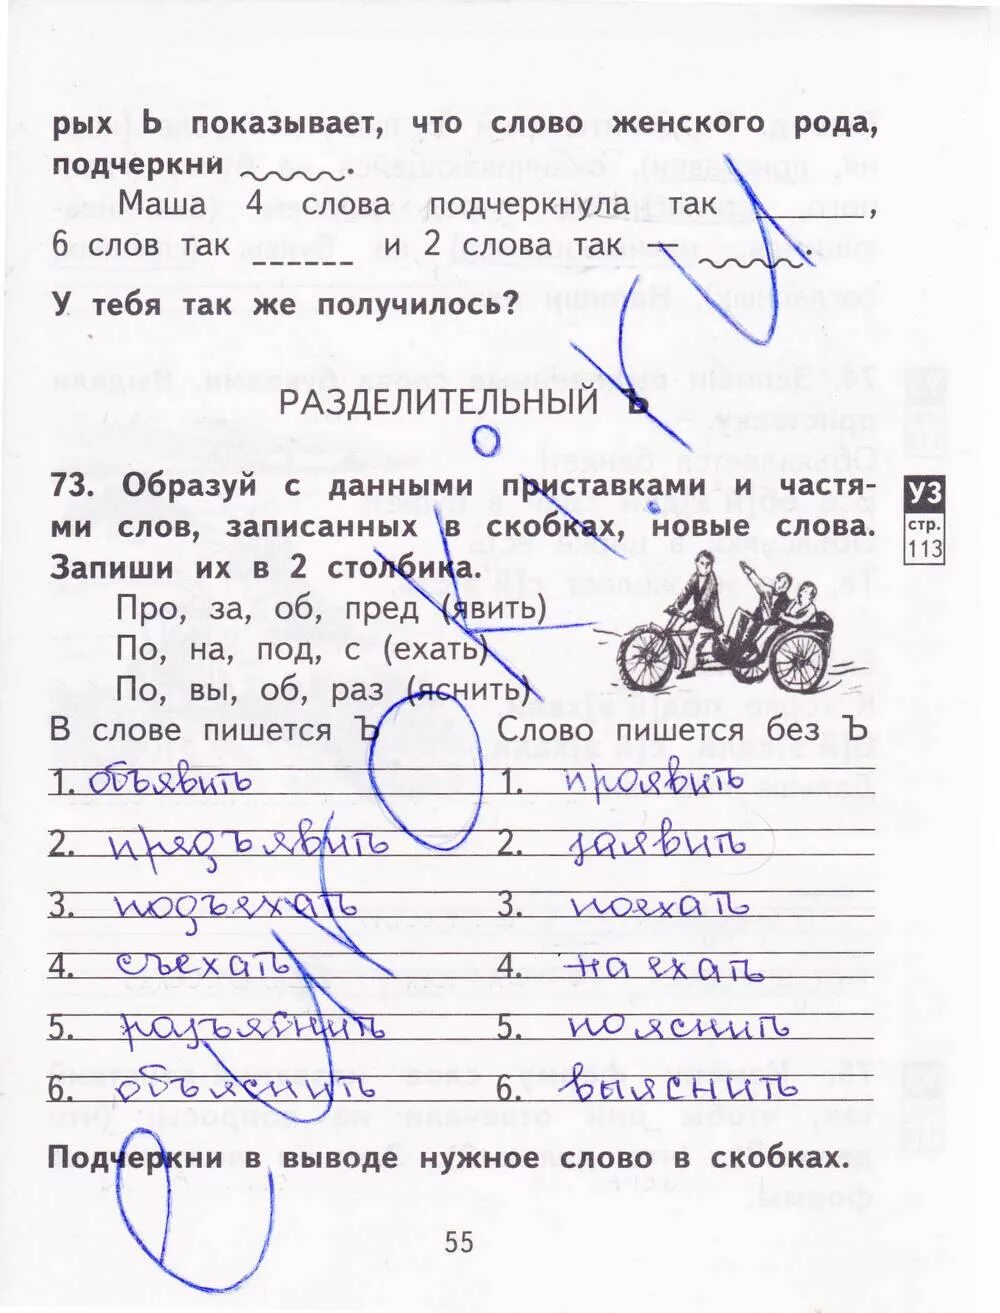 рых Ь показывает, что слово женского рода,
подчеркни .
Маша 4 слова подчеркнула так ,
6 слов так и 2 слова так .
У тебя так же получилось?
РАЗДЕЛИТЕЛЬНЫЙ Ъ
73. Образуй с данными приставками и частя-
ми слов, записанных в скобках, новые слова.
Запиши их в 2 столбика.
УЗ
стр.
113
Про, за, об, пред (явить)
По, на, под, с (ехать)
По, вы, об, раз (яснить)
В слове пишется Ъ Слово пишется без Ъ
1. объявить 1. проявить
2. предъявить 2. заявить
3. подъехать 3. поехать
4. съехать 4. наехать
5. разъяснить 5. пояснить
6. объяснить 6. выяснить
Подчеркни в выводе нужное слово в скобках.
55